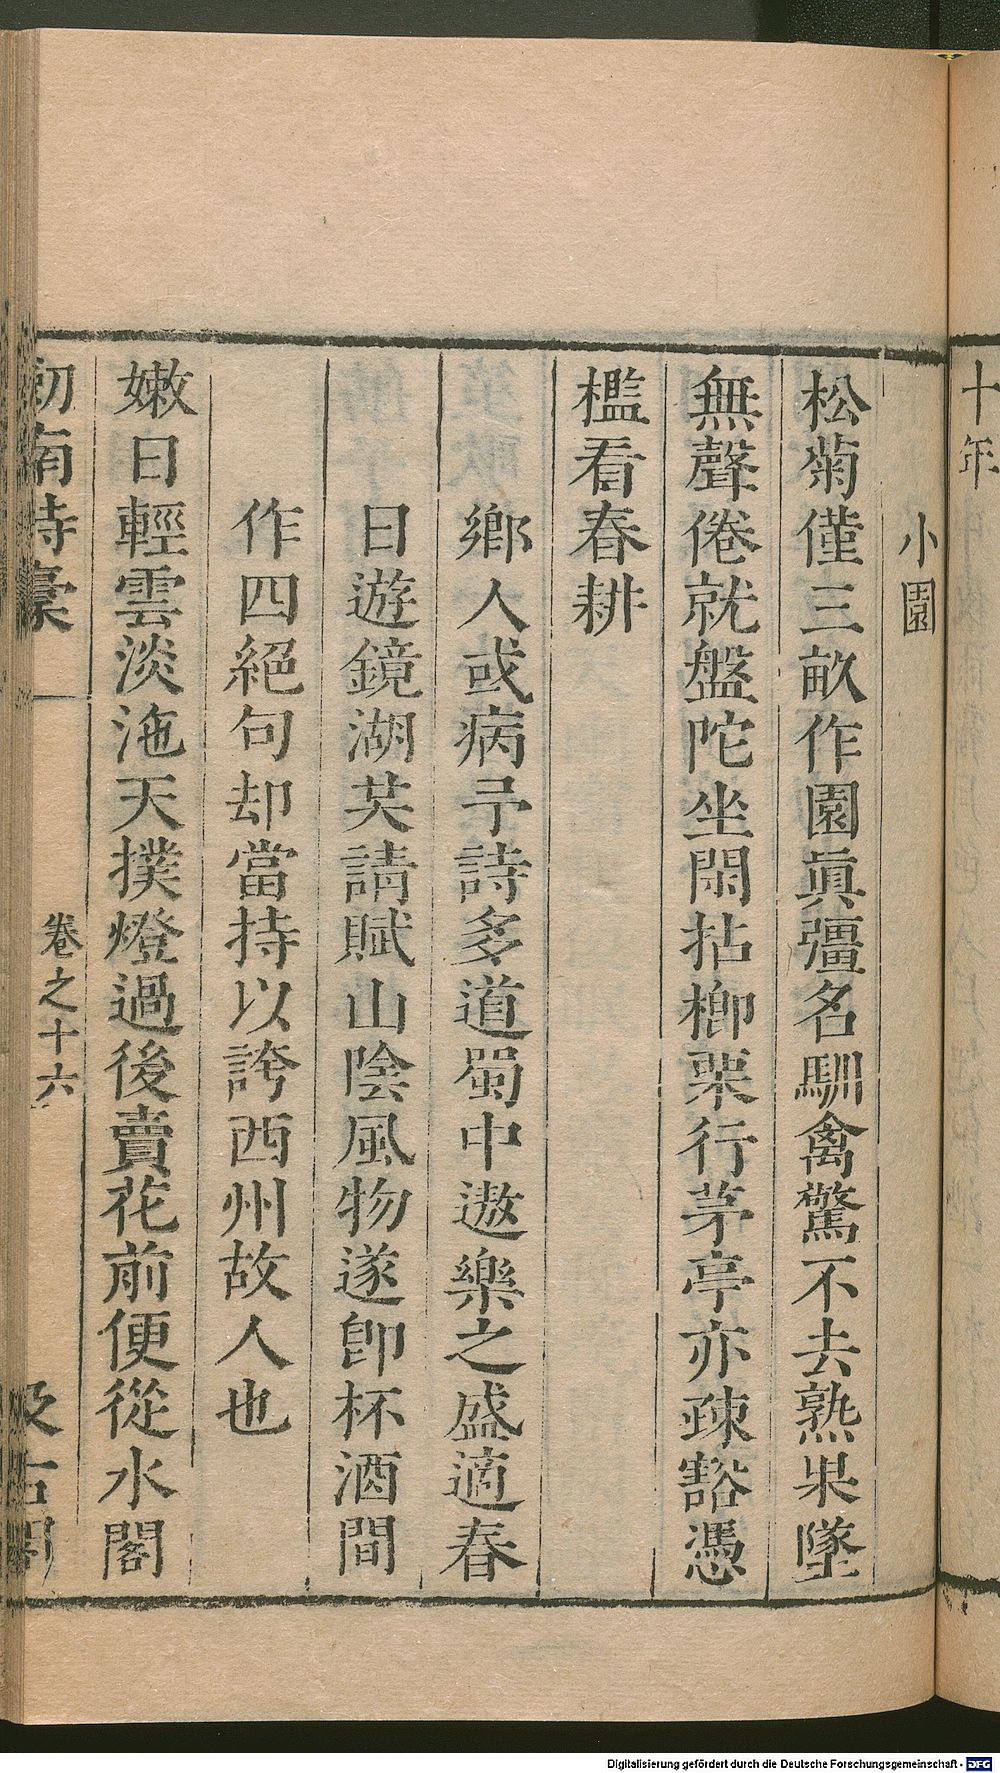 十年
小園
松菊僅三畝作園真彊名馴禽驚不去熟果墜
無聲倦就盤陀坐閑拈楖栗行茅亭亦疎豁憑
檻看春耕
鄉人或病予詩多道蜀中遨樂之盛適春
日遊鏡湖共請賦山陰風物遂即杯酒間
作四絕句却當持以誇西州故人也
嫩日輕雲淡沲天撲燈過後賣花前便從水閣
劒南詩稾 卷之十六 汲古閣
Digitalisierung gefördert durch die Deutsche Forschungsgemeinschaft - DFG